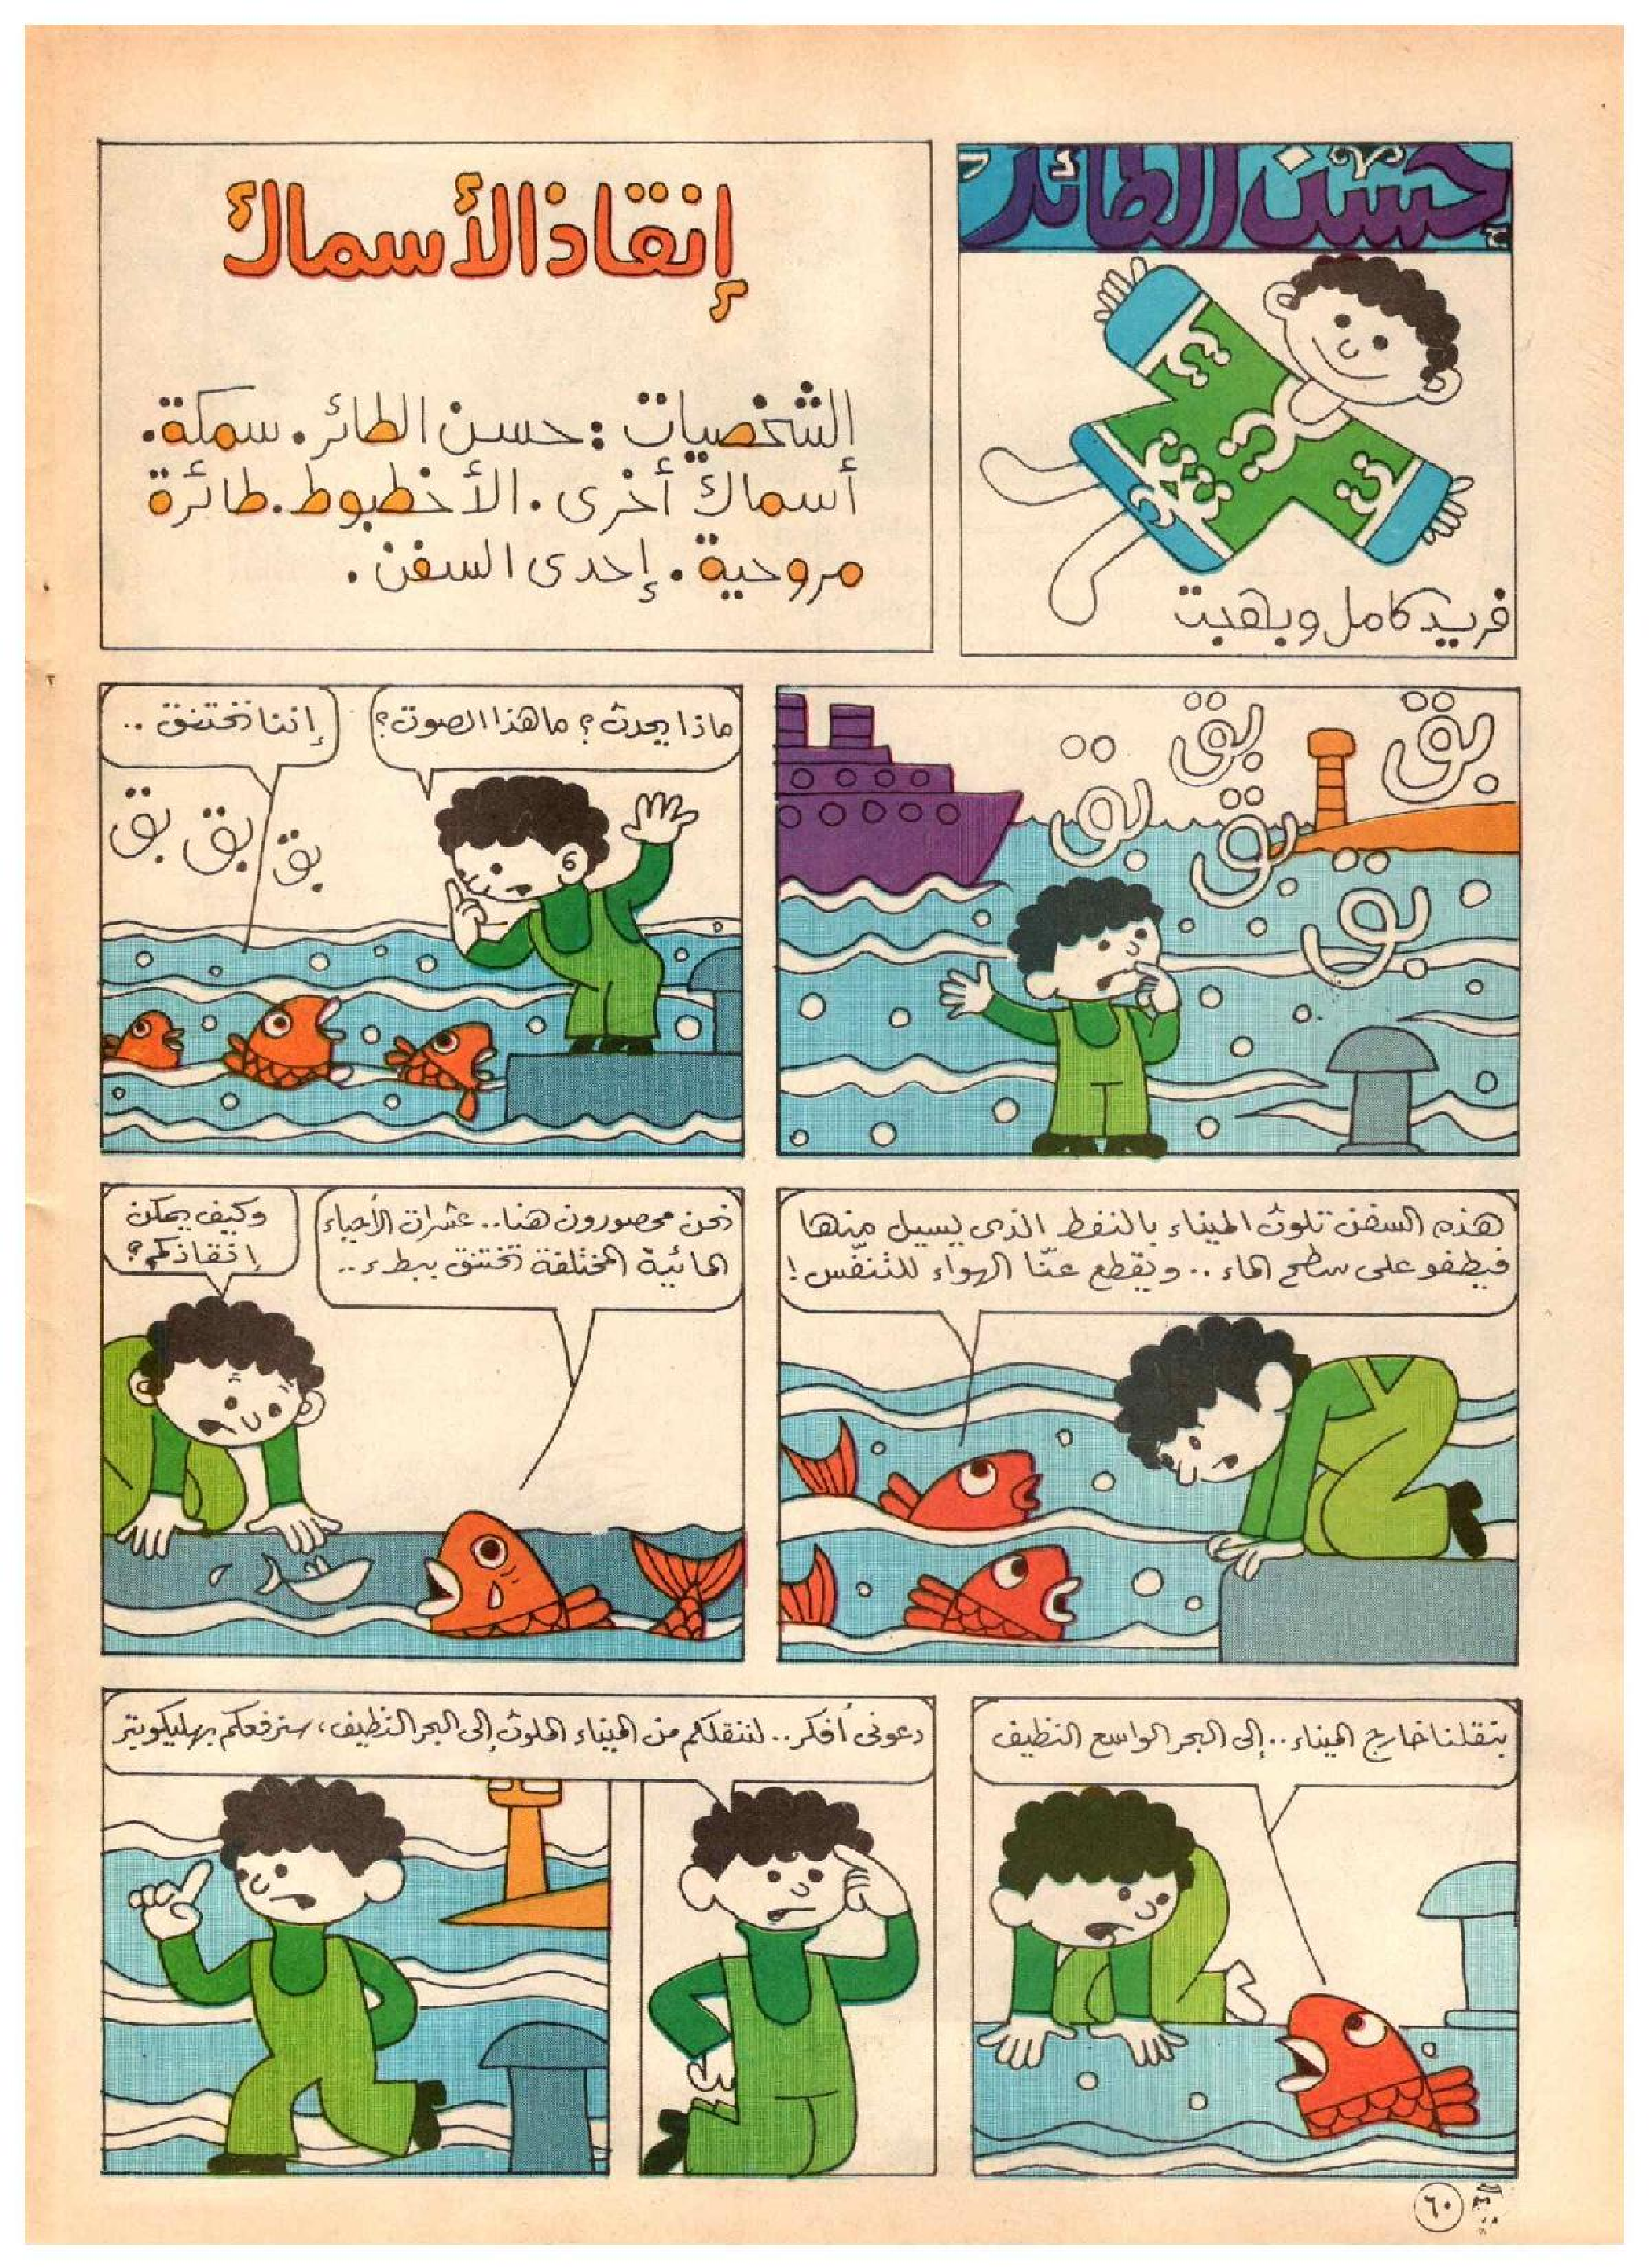 حسن الطائر
فريد كامل وبهجت
إنقاذ الأسماك
الشخصيات : حسن الطائر . سمكة .
أسماك أخرى . الأخطبوط . طائرة
مروحية . إحدى السفن .
بق
بق
بق
بق
بق
ماذا يحدث ؟ ما هذا الصوت ؟
إننا نختنق ..
بق
بق
بق
هذه السفن تلوث الميناء بالنفط الذى يسيل منها
فيطفو على سطح الماء .. ويقطع عنّا الهواء للتنفّس !
نحن محصورون هنا .. عشرات الأحياء
المائية المختلفة تختنق ببطء ..
وكيف يمكن
إنقاذكم ؟
بنقلنا خارج الميناء .. إلى البحر الواسع النظيف
دعونى أفكر .. لننقلكم من الميناء الملوث إلى البحر النظيف ، سنرفعكم بهليكوبتر
٦٠